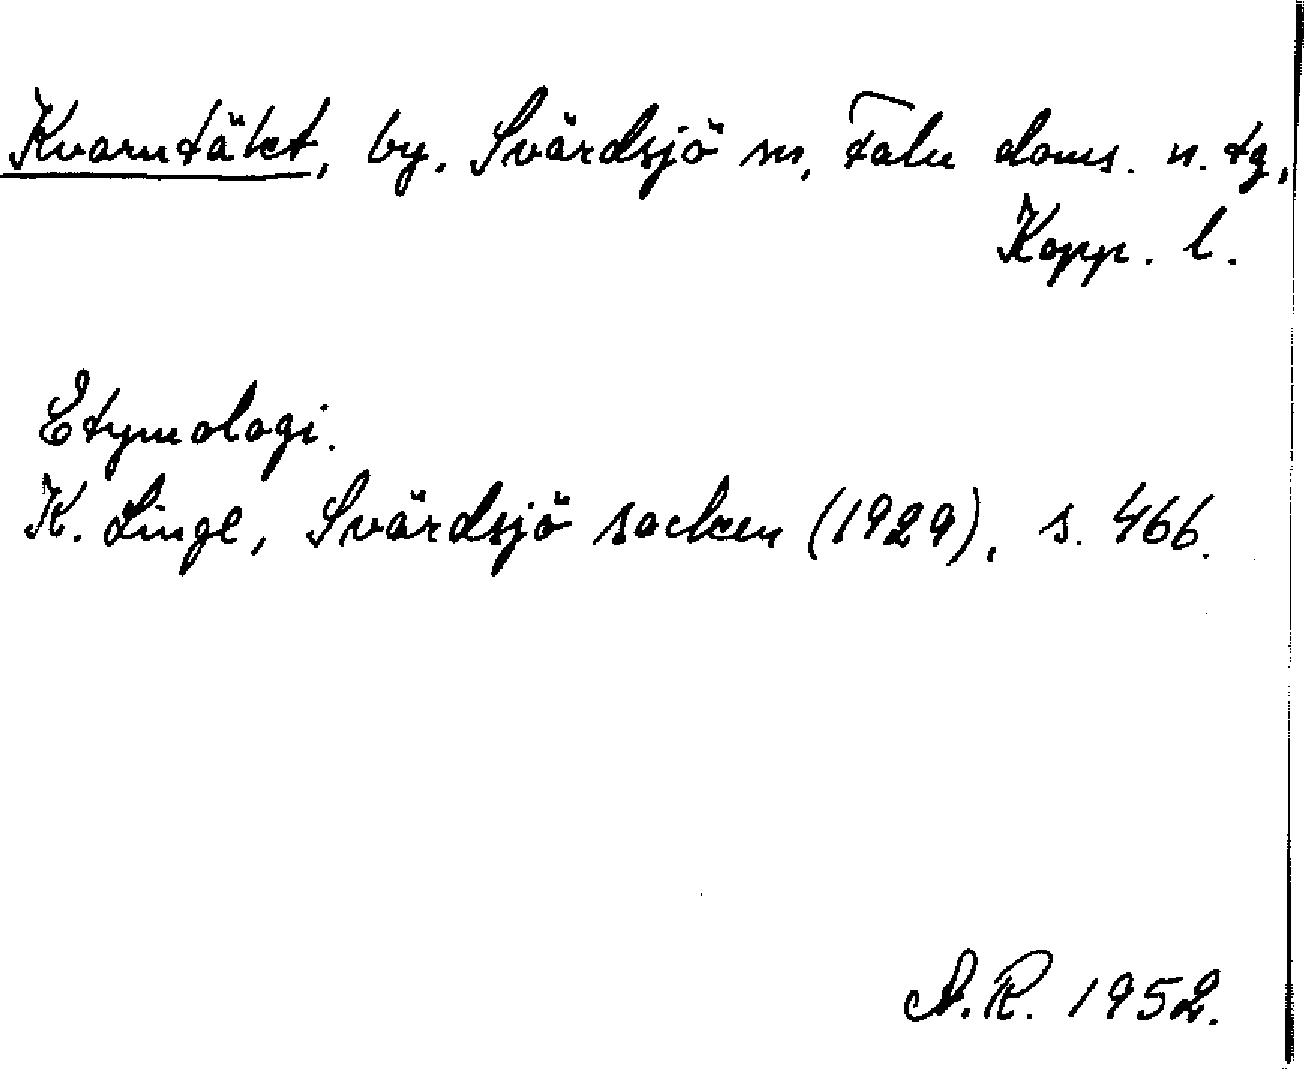 Kvarntäkt, by, Svärdsjö sn, Falu doms. n. tg,
Kopp. l.
Etymologi.
K. Linge, Svärdsjö socken (1929), s. 466.
A.R. 1952.